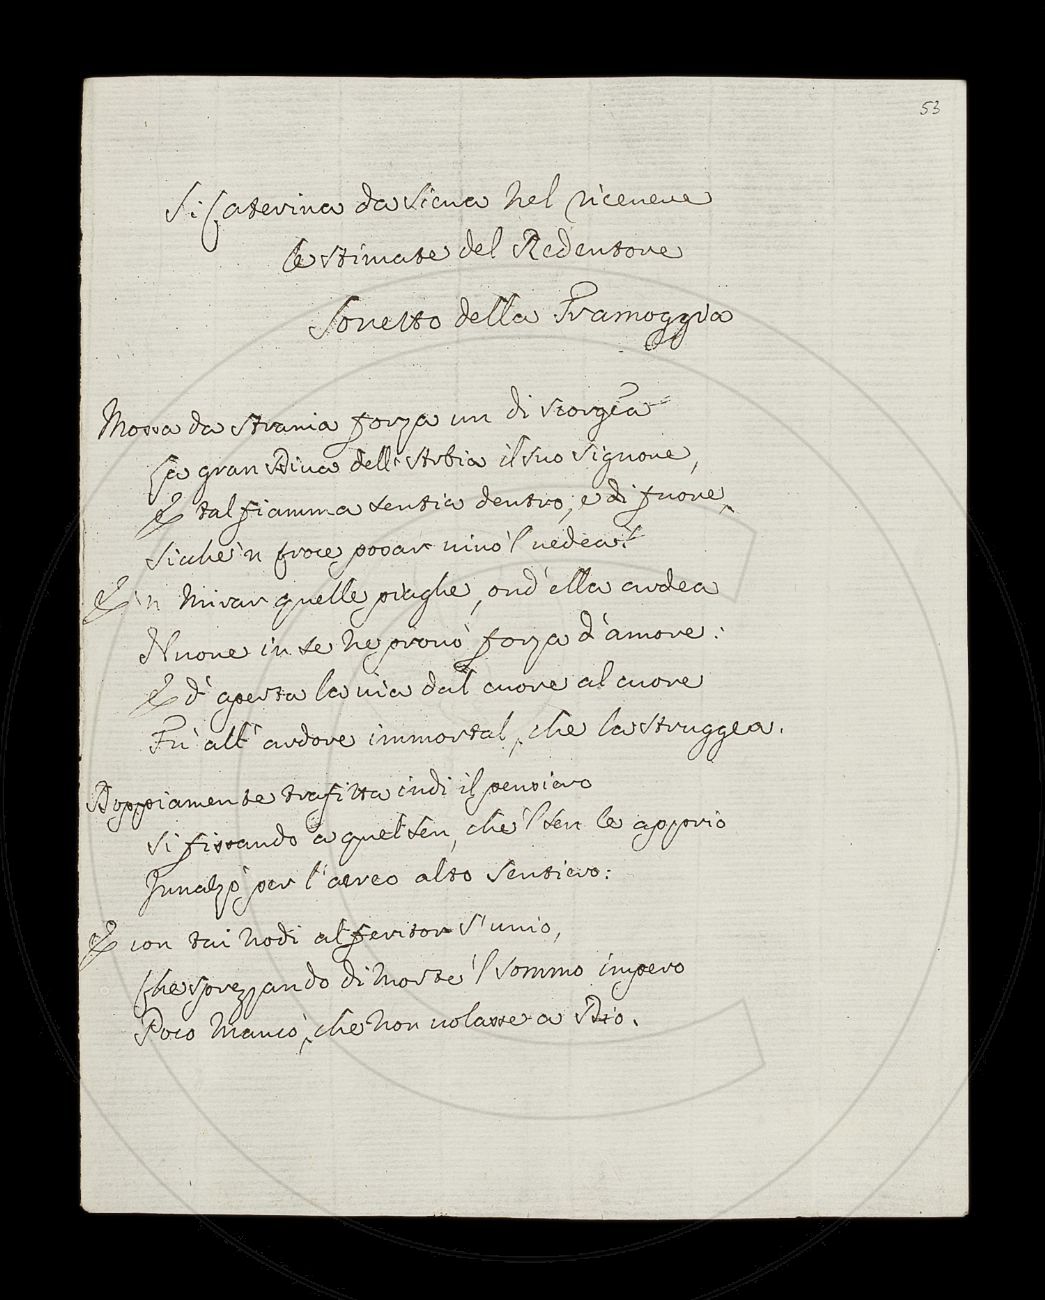 53
Si Caterina da Siena nel ricevere
le stimate del Redentore
Sonetto della Tramoggia
Mossa da strania forza un di scorgea
La gran Diva dell'Arbia il suo signore,
E tal fiamma sentia dentro, e di fuore,
Siche 'n croce posar vivo 'l vedea.
E 'n mirar quelle piaghe, ond'ella ardea
Nuove in se ne provò forza d'amore:
E d'aperta la via dal cuore al cuore
Fù all'ardore immortal, che la struggea.
Doppiamente trafitta indi il pensiero
Si fissando a quel sen, che 'l sen le apprio
Innalzò per l'aereo alto sentiero:
E con tai nodi al feritor s'unio,
Che sprezzando di morte 'l sommo impero
Poco mancò, che non volasse a Dio.